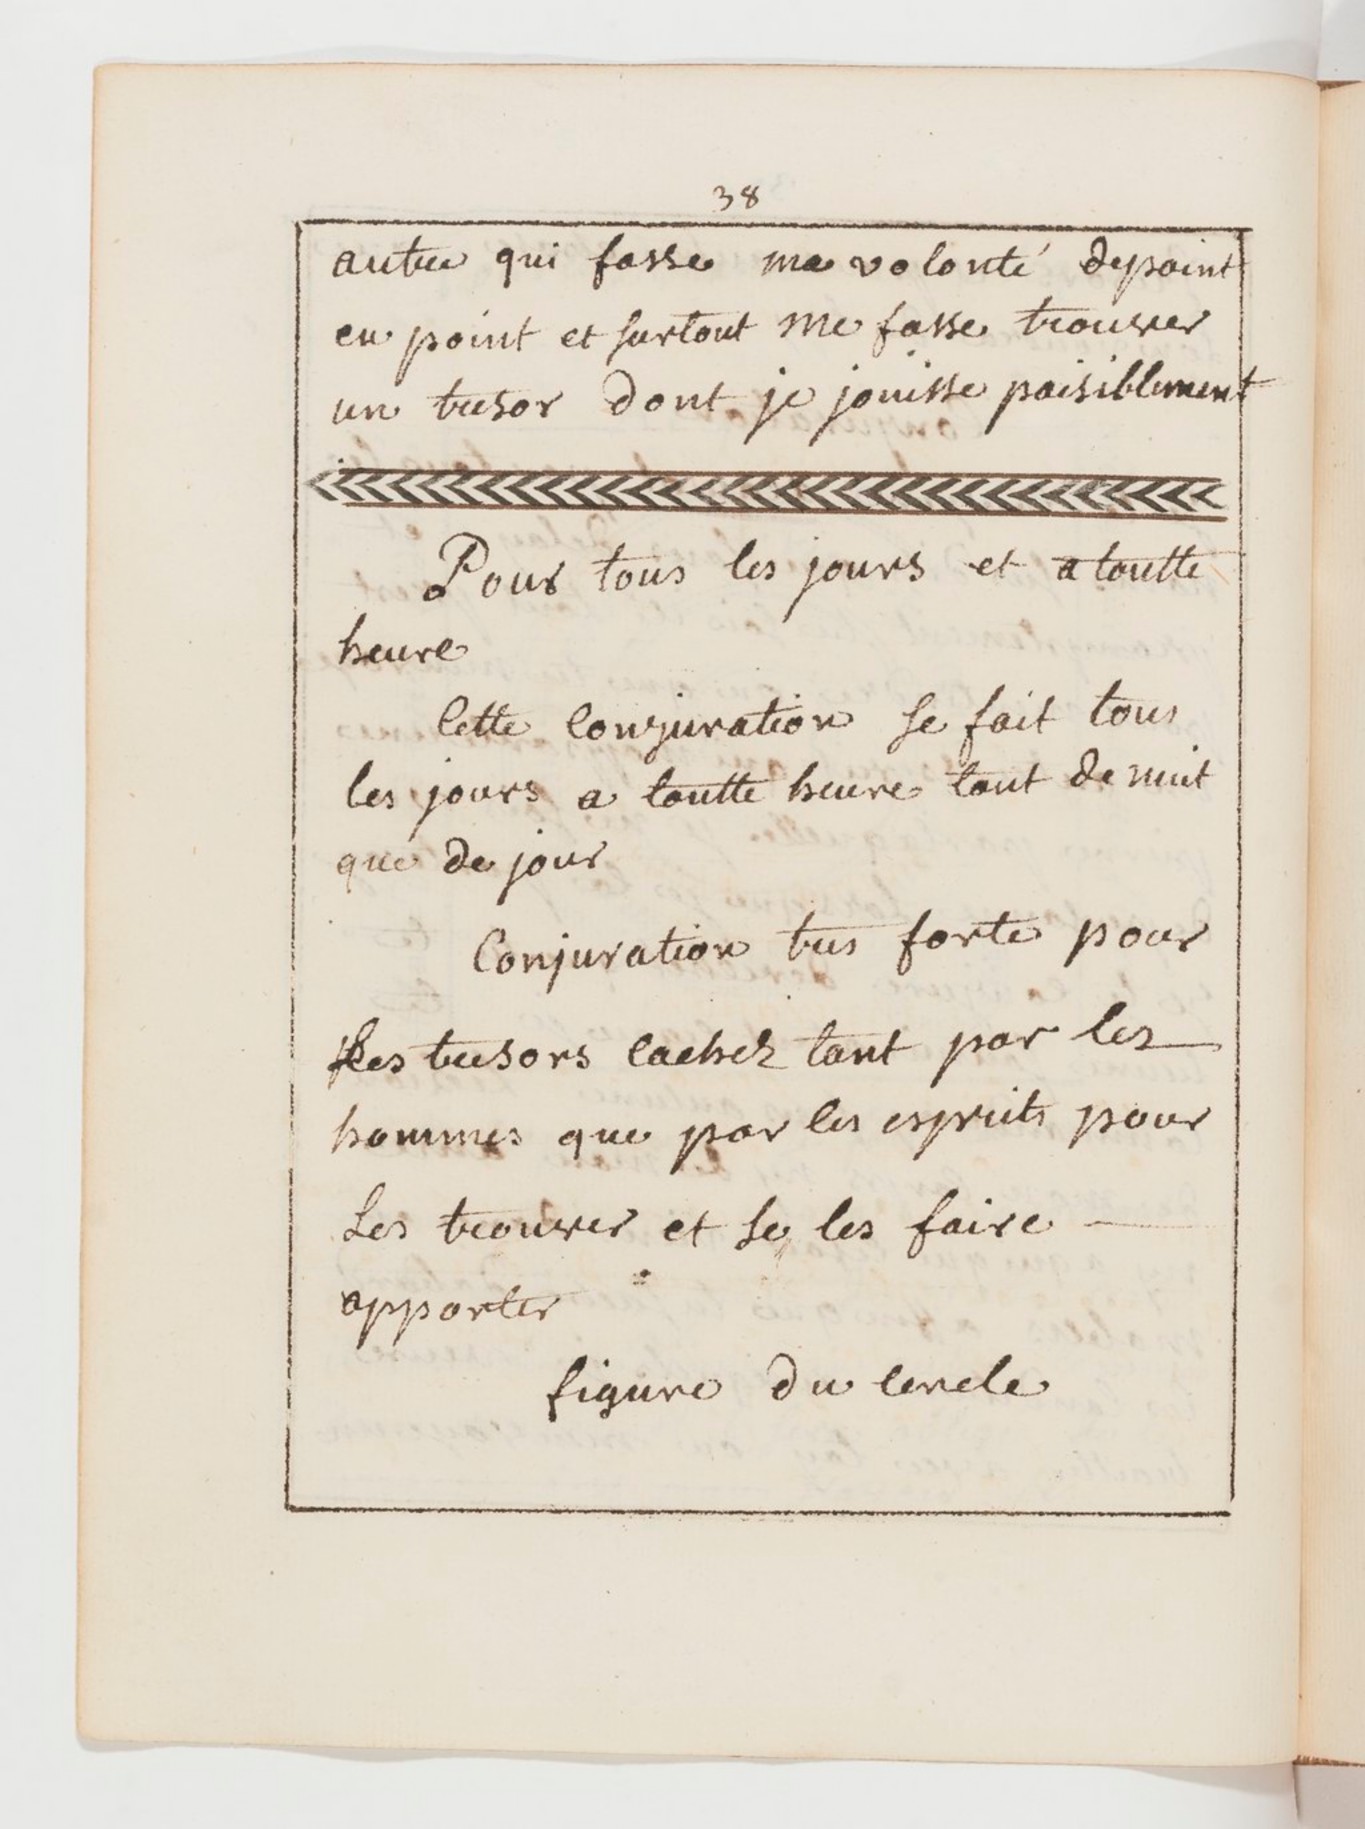 38
autre qui fasse ma volonté depoint
en point et surtout me fasse trouver
un tresor dont je jouisse paisiblement
Pour tous les jours et a toutte
heure
Cette Conjuration se fait tous
les jours a toutte heure tant de nuit
que de jour
Conjuration tres forte pour
Les tresors cachez tant par les
hommes que par les esprits pour
Les trouver et se les faire
apporter
figure du Cercle